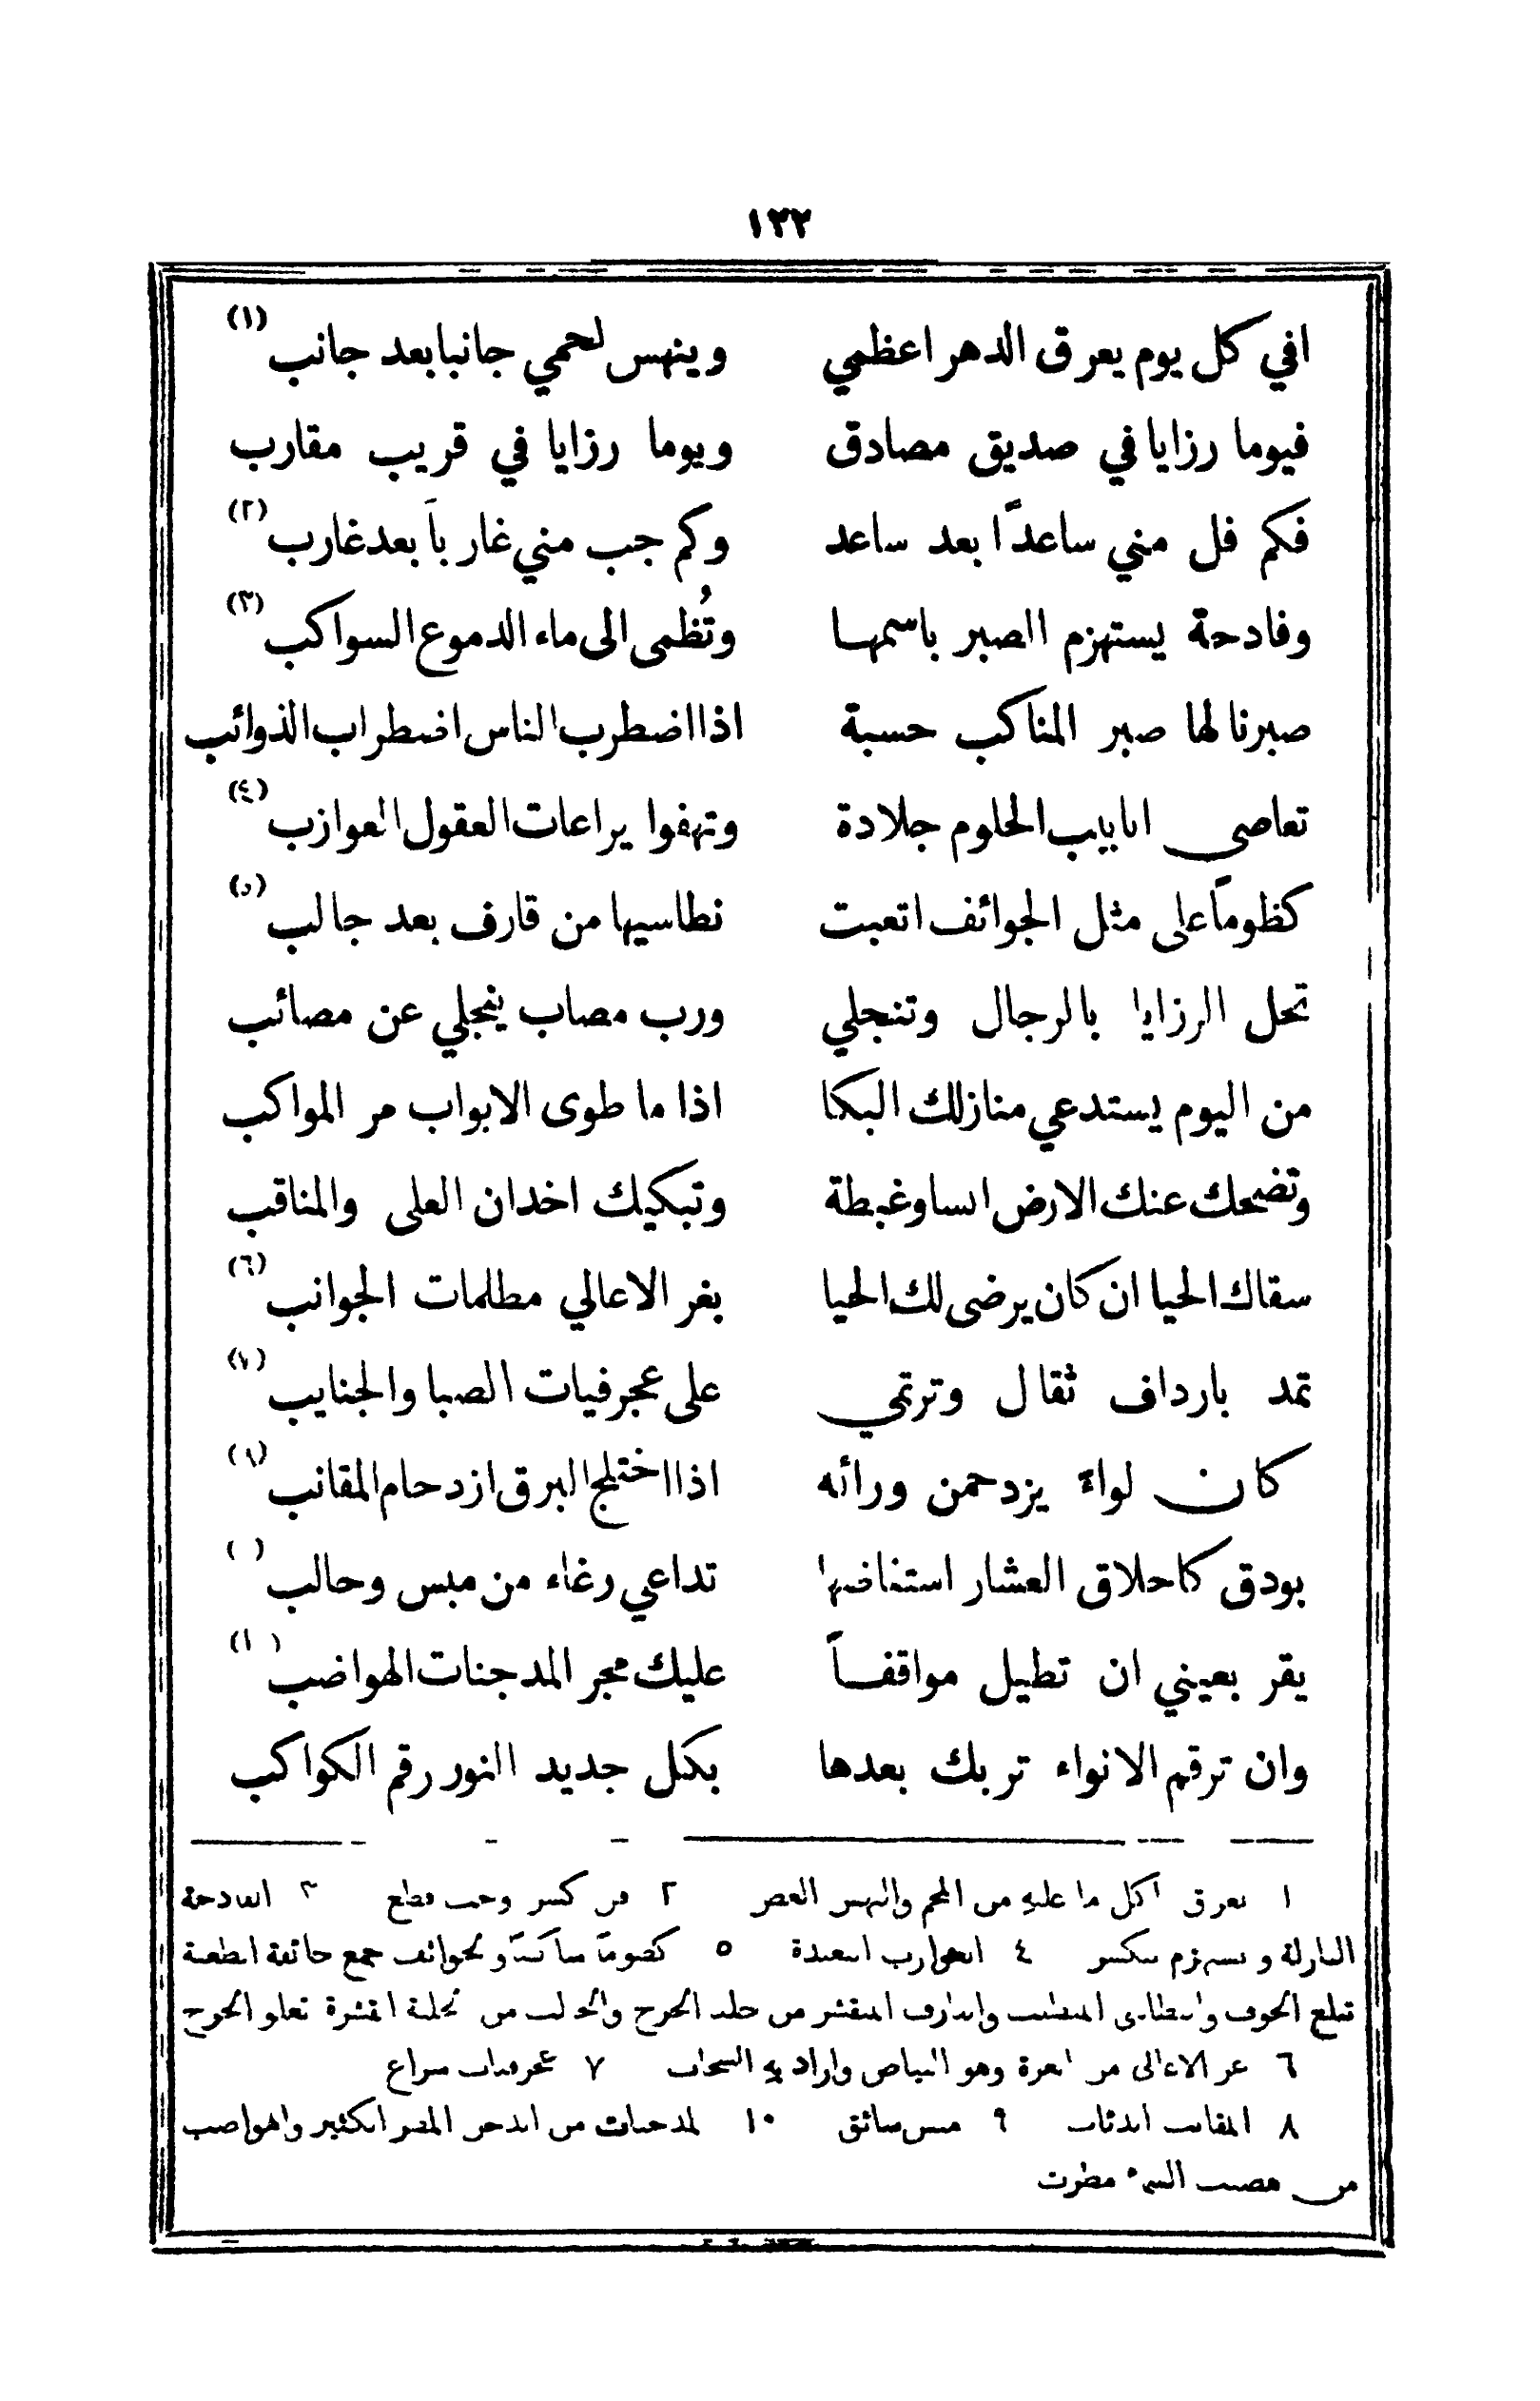 ١٣٢
افي كل يوم يعرق الدهر اعظمي وينهس لحمي جانبا بعد جانب (١)
فيوما رزايا في صديق مصادق ويوما رزايا في قريب مقارب
فكم فل مني ساعدًا بعد ساعد وكم جب مني غارباً بعد غارب (٢)
وفادحة يستهزم الصبر باسمها وتُظمى الى ماء الدموع السواكب (٣)
صبرنا لها صبر المناكب حسبة اذا اضطرب الناس اضطراب الذوائب
تعاصي انابيب الحلوم جلادة وتهفوا يراعات العقول العوازب (٤)
كظوماً على مثل الجوائف اتعبت نطاسيها من قارف بعد جالب (٥)
تحل الرزايا بالرجال وتنجلي ورب مصاب ينجلي عن مصائب
من اليوم يستدعي منازلك البكا اذا ما طوى الابواب مر المواكب
وتضحك عنك الارض انسا وغبطة وتبكيك اخدان العلى والمناقب
سقاك الحيا ان كان يرضى لك الحيا بغر الاعالي مظلمات الجوانب (٦)
تمد بارداف ثقال وترتمي على عجرفيات الصبا والجنايب (٧)
كان لواءً يزدحمن ورائه اذا اختلج البرق ازدحام المقانب (٨)
بودق كاحلاق العشار استفاضها تداعي رغاء من مبس وحالب ( )
يقر بعيني ان تطيل مواقفاً عليك مجر المدجنات الهواضب (١ )
وان ترقم الانواء تربك بعدها بكل جديد النور رقم الكواكب
١ يعرق اكل ما عليه من اللحم والنهس العض ٢ فل كسر وجب قطع ٣ الفادحة
النازلة ويستهزم ينكسر ٤ العوازب البعيدة ٥ كضوماً ساكتاً والجوائف جمع جائفة الطعنة
تبلغ الجوف والنطاسي الطبيب والقارف المتقشر من جلد الجرح والجالب من الجلبة القشرة تعلو الجرح
٦ غر الاعالي من الغرة وهو البياض واراد به السحاب ٧ عجرفيات سراع
٨ المقانب الذئاب ٩ مبس سائق ١٠ المدجنات من الدجن المطر الكثير والهواضب
من هضبت السماء مطرت